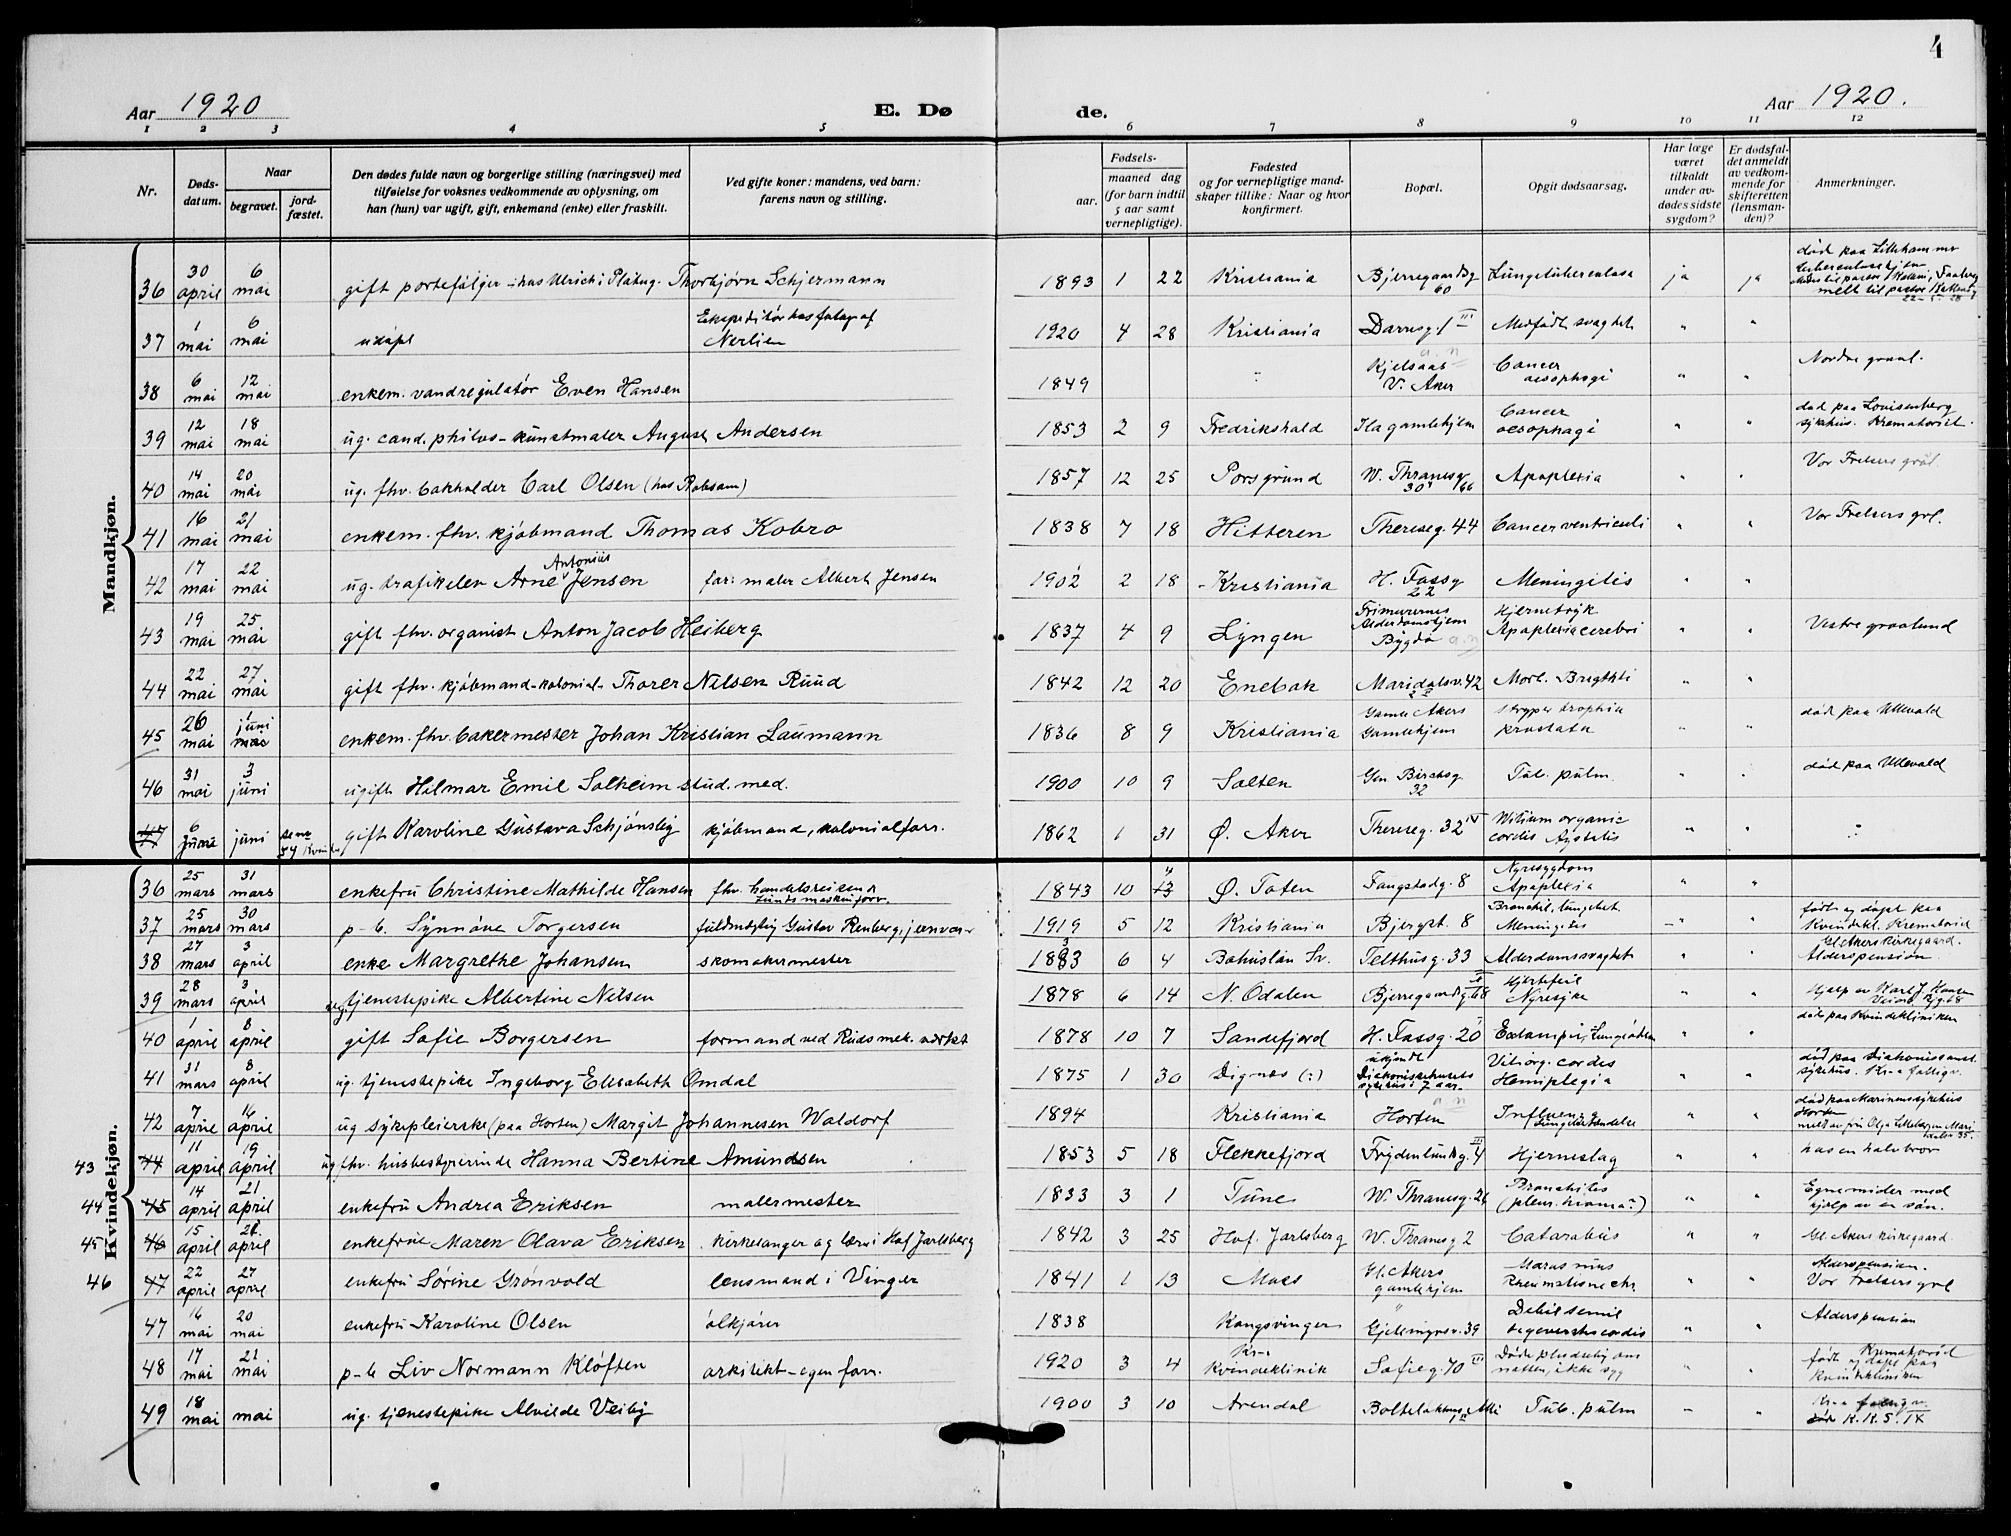 4
Aar 1920 E. Døde. Aar 1920.
1 2 3 4 5 6 7 8 9 10 11 12
Nr. Dødsdatum. Naar begravet. jordfæstet.
Den dødes fulde navn og borgerlige stilling (næringsvei) med
tilføielse for voksnes vedkommende av oplysning, om
han (hun) var ugift, gift, enkemand (enke) eller fraskilt.
Ved gifte koner: mandens, ved barn:
farens navn og stilling.
Fødsels-
aar. maaned dag
(for barn indtil
5 aar samt
vernepligtige).
Fødested
og for vernepligtige mand-
skaper tillike: Naar og hvor
konfirmert.
Bopæl.
Opgit dødsaarsag.
Har læge
været
tilkaldt
under av-
dødes sidste
sygdom?
Er dødsfal-
det anmeldt
av vedkom-
mende for
skifteretten
(lensman-
den)?
Anmerkninger.
Mandkjøn.
36 30 april 6 mai gift portefølger Thorbjørn Schjermann 1893 1 22 Kristiania Bjerregaardsg 60 Lungetuberculose ja ja død paa Lillehammer
37 1 mai 6 mai udøpt Ekspeditør hos fotograf Nerlien 1920 4 28 Kristiania Darresg. 1 III Medfødt svaghet " "
38 6 mai 12 mai enkem. vandregulatør Even Hansen 1849 Kjelsaas V. Aker Cancer oesophagi " " Nordre gravl.
39 12 mai 18 mai ug. cand. philos - kunstmaler August Andersen 1853 2 9 Fredrikshald Ila gamlehjem Cancer oesophagi " " død paa Lovisenberg sykehus. Krematoriet.
40 14 mai 20 mai ug. fhv. bokholder Carl Olsen (hos Robsam) 1857 12 25 Porsgrund W. Thranesg 30 Apoplexia " " Vor Frelsers grvl.
41 16 mai 21 mai enkem. fhv. kjøbmand Thomas Kobro 1838 7 18 Hitteren Thereseg. 44 Cancer ventriculi " " Vor Frelsers grl.
42 17 mai 22 mai ug. trafikelev Arne Antonius Jensen far: maler Albert Jensen 1902 2 18 Kristiania H. Fossg 22 Meningitis " "
43 19 mai 25 mai gift fhv. organist Anton Jacob Heiberg 1837 4 9 Lyngen Frimurernes Alderdomshjem Bygdø Hjernetryk Apoplexia cerebri " " Vestre gravlund
44 22 mai 27 mai gift fhv. kjøbmand-kolonial- Thorer Nilsen Ruud 1842 12 20 Enebak Maridalsv. 42 Morb. Brigthti " "
45 26 mai 1 juni enkem. fhv. bakermester Johan Kristian Laumann 1836 8 9 Kristiania Gamle Akers Gamlehjem Hypertrophia prostata " " død paa Ullevold
46 31 mai 3 juni ugift Hilmar Emil Solheim stud. med. 1900 10 9 Salten Gen. Birchsg. 32 Tub. pulm. " " død paa Ullevold
47 6 juni juni se nr 54 Kvinder gift Karoline Gustava Schjønsby kjøbmand, kolonialforr. 1862 1 31 Ø. Aker Thereseg. 32 IV Vitium organic cordis " "
Kvindekjøn.
36 25 mars 31 mars enkefru Christine Mathilde Hansen fhv. handelsreisende 1843 10 4 Ø. Toten Fougstadg. 8 Nyresygdom Apoplexia " "
37 25 mars 30 mars p-b. Synnøve Torgersen fuldmægtig Gustav Renberg, jernvar 1919 5 12 Kristiania Bjergst. 8 Bronchit, lungebet. Meningitis - " født og døpt paa Kvindekl. Krematoriet
38 27 mars 3 april enke Margrethe Johansen skomakermester 1833 6 4 Bohuslän Sv. Telthusg. 33 Alderdomssvaghet " " Gl. Akers kirkegaard. Alderspension
39 28 mars 3 april ug. tjenestepike Albertine Nilsen 1878 6 14 N. Odalen Bjerregaardsg. 68 Hjertefeil Nyresyke " " Hjælp av Karl J. Hansen
40 1 april 8 april gift Sofie Borgersen formand ved Ruds mek. verkst 1878 10 7 Sandefjord H. Fossg. 20 " " død paa Kvindekliniken
41 31 mars 8 april ug. tjenestepike Ingeborg Elisabeth Omdal 1875 1 30 Dignæs (:) ukjendt Diakonissehusets sykehus i 7 aar. Vit. org. cordis Hemiplegia " " død paa Diakonisseanst. sykehus. Kr-a fattigv.
42 7 april 16 april ug sykepleierske (paa Horten) Margit Johannesen Waldorf 1894 Kristiania Horten Influenza Lungebetændelse " " død paa Marinens sykehus Horten
43 44 11 april 19 april ug fhv. husbestyrerinde Hanna Bertine Amundsen 1853 5 18 Flekkefjord Frydenlundsg. 4 III Hjerneslag " " hos en halvbror
44 45 14 april 21 april enkefru Andrea Eriksen malermester 1833 3 1 Tune W. Thranesg. 26 Bronchitis " " Egne midler med hjælp av en søn.
45 46 15 april 21. april enkefrue Maren Olava Eriksen kirkesanger og lærer i Hof Jarlsberg 1842 3 25 Hof. Jarlsberg W. Thranesg 2 " " Gl. Akers kirkegaard.
46 47 22 april 27 april enkefru Sørine Grønvold lensmand i Vinger 1841 1 13 Moss Gl. Akers gamlehjem Marasmus Rheumatisme chr. " " Alderspension. Vor Frelsers grvl
47 16 mai 20 mai enkefru Karoline Olsen ølkjører 1838 Kongsvinger 39 Debil. senil degeneratio cordis " " Alderspension
48 17 mai 21 mai p-b Liv Normann Kløften arkitekt - egen forr. 1920 3 4 Kr-a Kvindeklinik Sofieg. 70 III Døde pludselig om natten, ikke syg " Krematoriet født og døpt paa Kvindekliniken
49 18 mai mai ug. tjenestepike Alvilde Veiby 1900 3 10 Arendal Tub. pulm - " Kr-a fattigv. K. K. S. IX